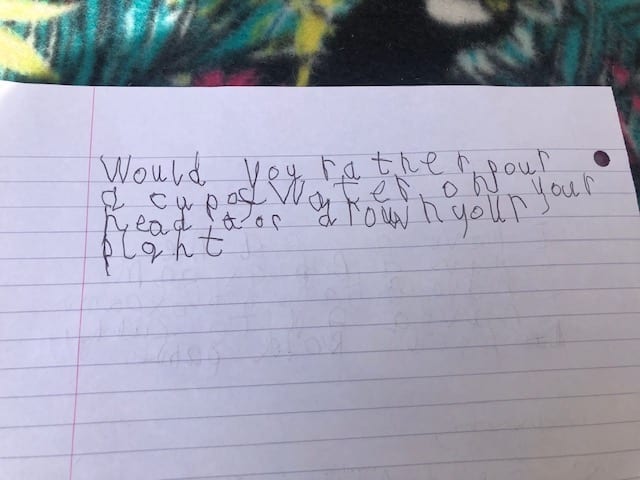 Would you rather pour
a cup of Water on your
head or drown your
plant